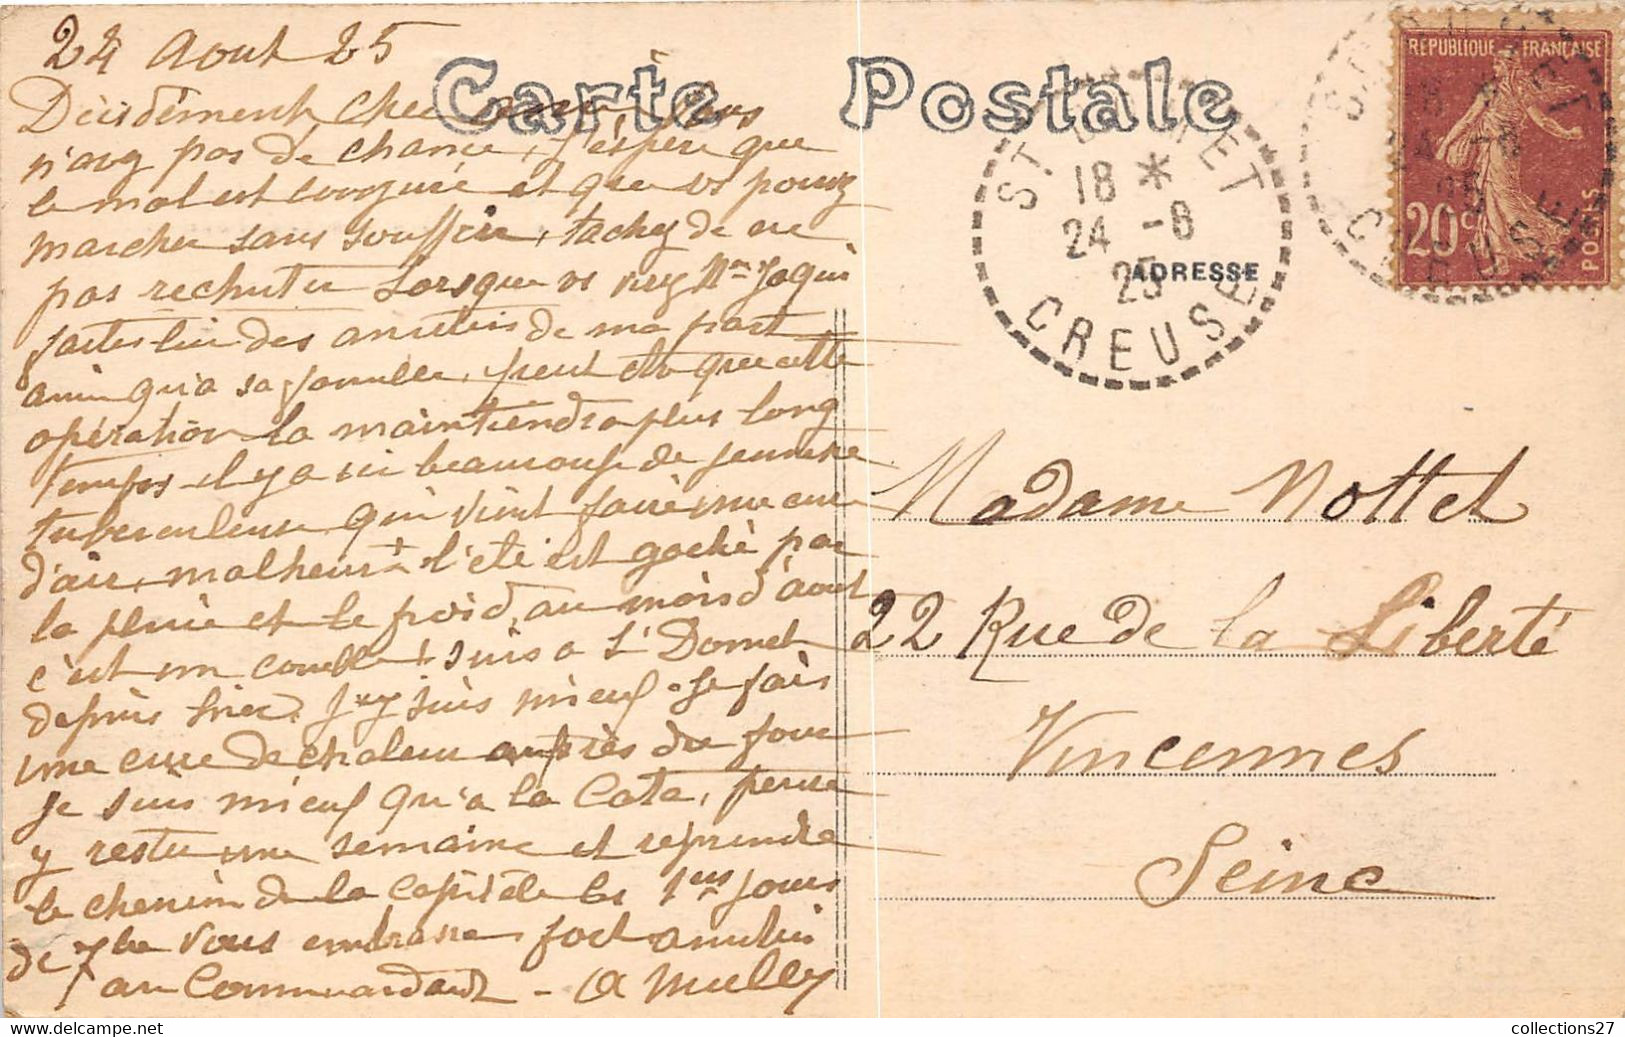 24 Aout 25
Carte Postale
Décidement chère vous
n'avez pas de chance, j'espère que
le mal est conjuré et que vs pouvez
marcher sans souffrir, tachez de ne
pas rechuter Lorsque vs verrez Mme Jaquin
faites lui des amitiés de ma part
ainsi qu'a sa famille, peut etre que cette
opération la maintiendra plus long
temps il y a ici beaucoup de jeunesse
tuberculeuse qui vient faire une cure
d'air, malheurt l'été est gaché par
la pluie et le froid, au mois d'aout
c'est un comble! suis a St Domet
depuis hier, j'y suis mieux. Je fais
une cure de chaleur auprès du four
je suis mieux qu'a la Cata, pense
y rester une semaine et reprendre
le chemin de la capitale les 1ers jours
de 7bre Vous embrasse fort amitiés
au Commandant - A Mully
ST DOMET
18 *
24 -8
25
CREUSE
ADRESSE
REPUBLIQUE FRANÇAISE
20c
POSTES
Madame Nottet
22 Rue de la Liberté
Vincennes
Seine
collections27